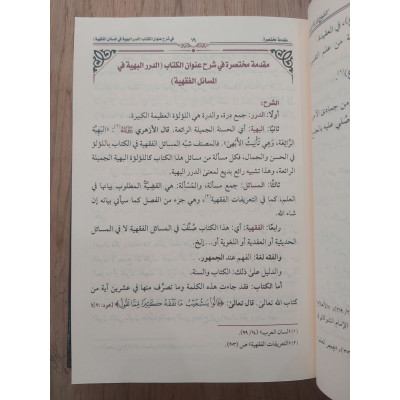 مقدمة مختصرة
١٩
في شرح عنوان الكتاب (الدرر البهية في المسائل الفقهية)
مقدمة مختصرة في شرح عنوان الكتاب (الدرر البهية في
المسائل الفقهية)
الشرح:
أولًا: الدرر: جمع درة، والدرة هي اللؤلؤة العظيمة الكبيرة.
ثانيًا: البهية: أي: الحسنة الجميلة الرائعة. قال الأزهري: «البَهِيَّة
الرَّائِعَة، وَهِي تَأْنِيثُ الأَبْهَى»، فالمصنف شبَّه المسائل الفقهية في الكتاب باللآلئ
في الحسن والجمال، فكل مسألة من مسائل هذا الكتاب كاللؤلؤة البهية الجميلة
الرائعة، وهذا تشبيه رائع بديع لمعنى الدرر البهية.
ثالثًا: المسائل: جمع مسألة، والمسْألة: هي القضِيَّةُ المطلوب بيانها في
العلم، كما في التعريفات الفقهية(٢)، وهي جزء من الفصل كما سيأتي بيانه إن
شاء الله.
رابعًا: الفقهية: أي: هذا الكتاب صُنِّفَ في المسائل الفقهية لا في المسائل
الحديثية أو العقدية أو اللغوية أو...إلخ.
والفقه لغة: الفهم عند الجمهور.
والدليل على ذلك: الكتاب والسنة.
أما الكتاب: فقد جاءت هذه الكلمة وما تصرَّف منها في عشرين آية من
كتاب الله تعالى. قال تعالى: ﴿قَالُوا يَشُعَيْبُ مَا نَفْقَهُ كَثِيرًا مِّمَّا تَقُولُ﴾ [هود: ٩١]
(١) «لسان العرب» (١٤/ ٩٩).
(٢) «التعريفات الفقهية» ص (٢٠٣).